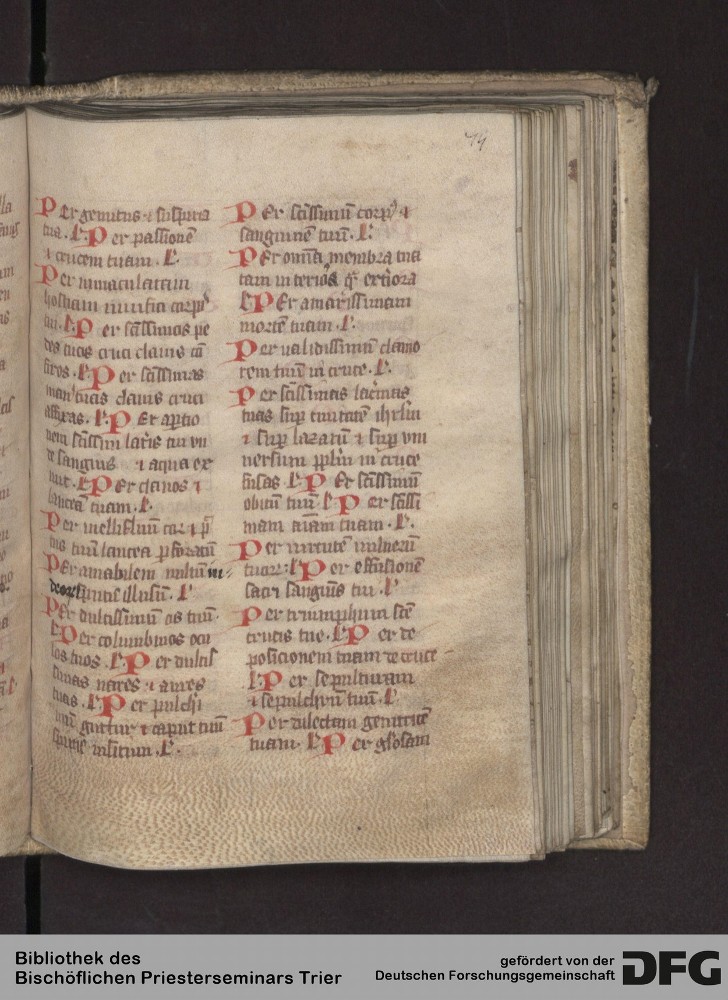 74
Per gemitus ⁊ suspiria
tua. L. Per passionē
⁊ crucem tuam. L.
Per immaculatam
hostiam
tui. L. Per scīssimos pe
des tuos cruci clauis cō
L. Per scīssimas
man' tuas clauis cruci
affixas. L. Per aptio
nem scīssimi laťis tui vn
de sanguis ⁊ aqua ex
iuit. L. Per clauos ⁊
lanceā tuam. L.
Per mellifluū cor ⁊
tuū lancea pforatū
Per amabilem vultū
illusū. L
Per dulcissimū os tuū.
L Per columbinos ocu
los tuos. L. Per dulcis
simas nares ⁊ aures
tuas. L. Per pulchrū
guttur ⁊ caput tuū
spinis L.
Per scīssimū corp9 ⁊
sanguinem tuū. L.
Per omīa membra tua
tam interiora exteriora
L Per amarissimam
mortē tuam. L.
Per validissimū clamo
rem tuū in cruce. L.
Per scīssimas lacrimas
tuas sup ciuitatē ihrlm
⁊ sup lazarū ⁊ sup vni
uersum pplm in cruce
fusas. L Per scīssimū
obitū tuū. L Per scīssi
mam aīam tuam. L.
Per virtutē vulnerū
tuorū. L Per effusionē
sacri sanguis tui. L
Per triumphum scē
crucis tue. L Per de
posicionem tuam de cruce
L Per sepulturam
⁊ sepulchrū tuū. L
Per dilectam genitricē
tuam. L Per gl'osam
Bibliothek des
Bischöflichen Priesterseminars Trier
gefördert von der
Deutschen Forschungsgemeinschaft
DFG